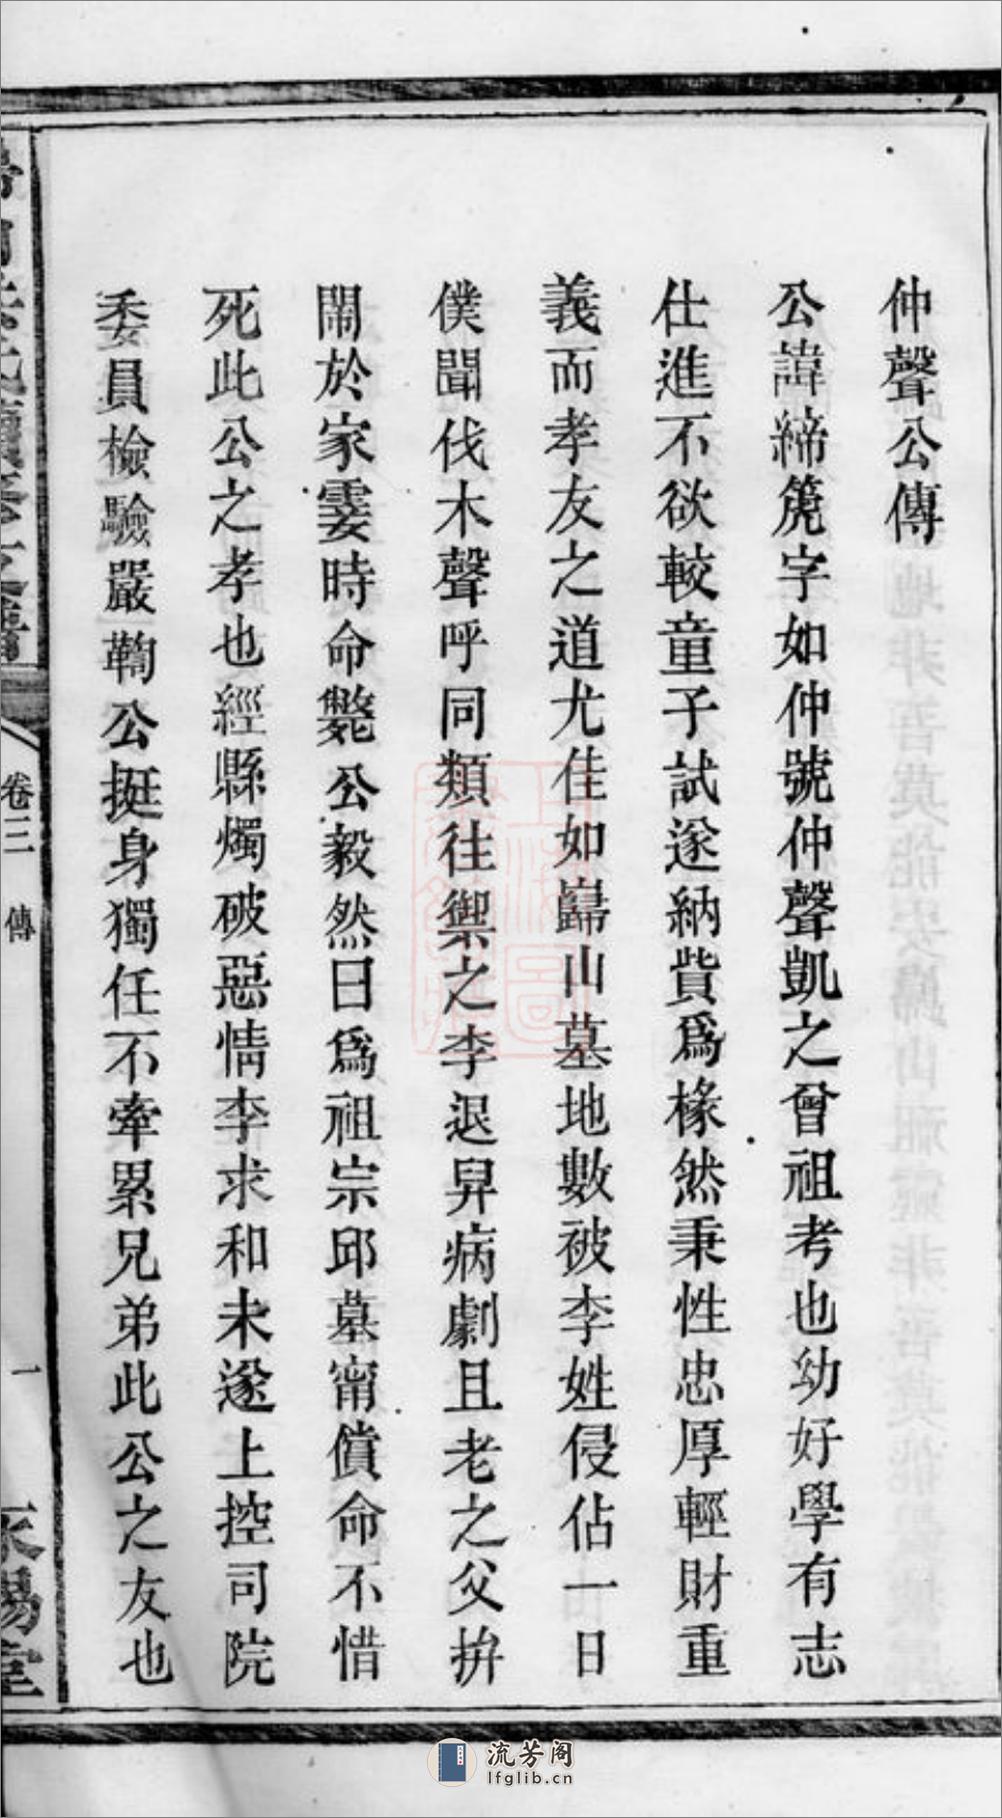 仲聲公傳
公諱締箎字如仲號仲聲凱之曾祖考也幼好學有志
仕進不欲較童子試遂納貲爲椽然秉性忠厚輕財重
義而孝友之道尤佳如巋山墓地數被李姓侵佔一日
僕聞伐木聲呼同類往禦之李退舁病劇且老之父拚
鬧於家霎時命斃公毅然曰爲祖宗邱墓甯償命不惜
死此公之孝也經縣燭破惡情李求和未遂上控司院
委員檢驗嚴鞫公挺身獨任不牽累兄弟此公之友也
卷三 傳
一
流芳阁
lfglib.cn